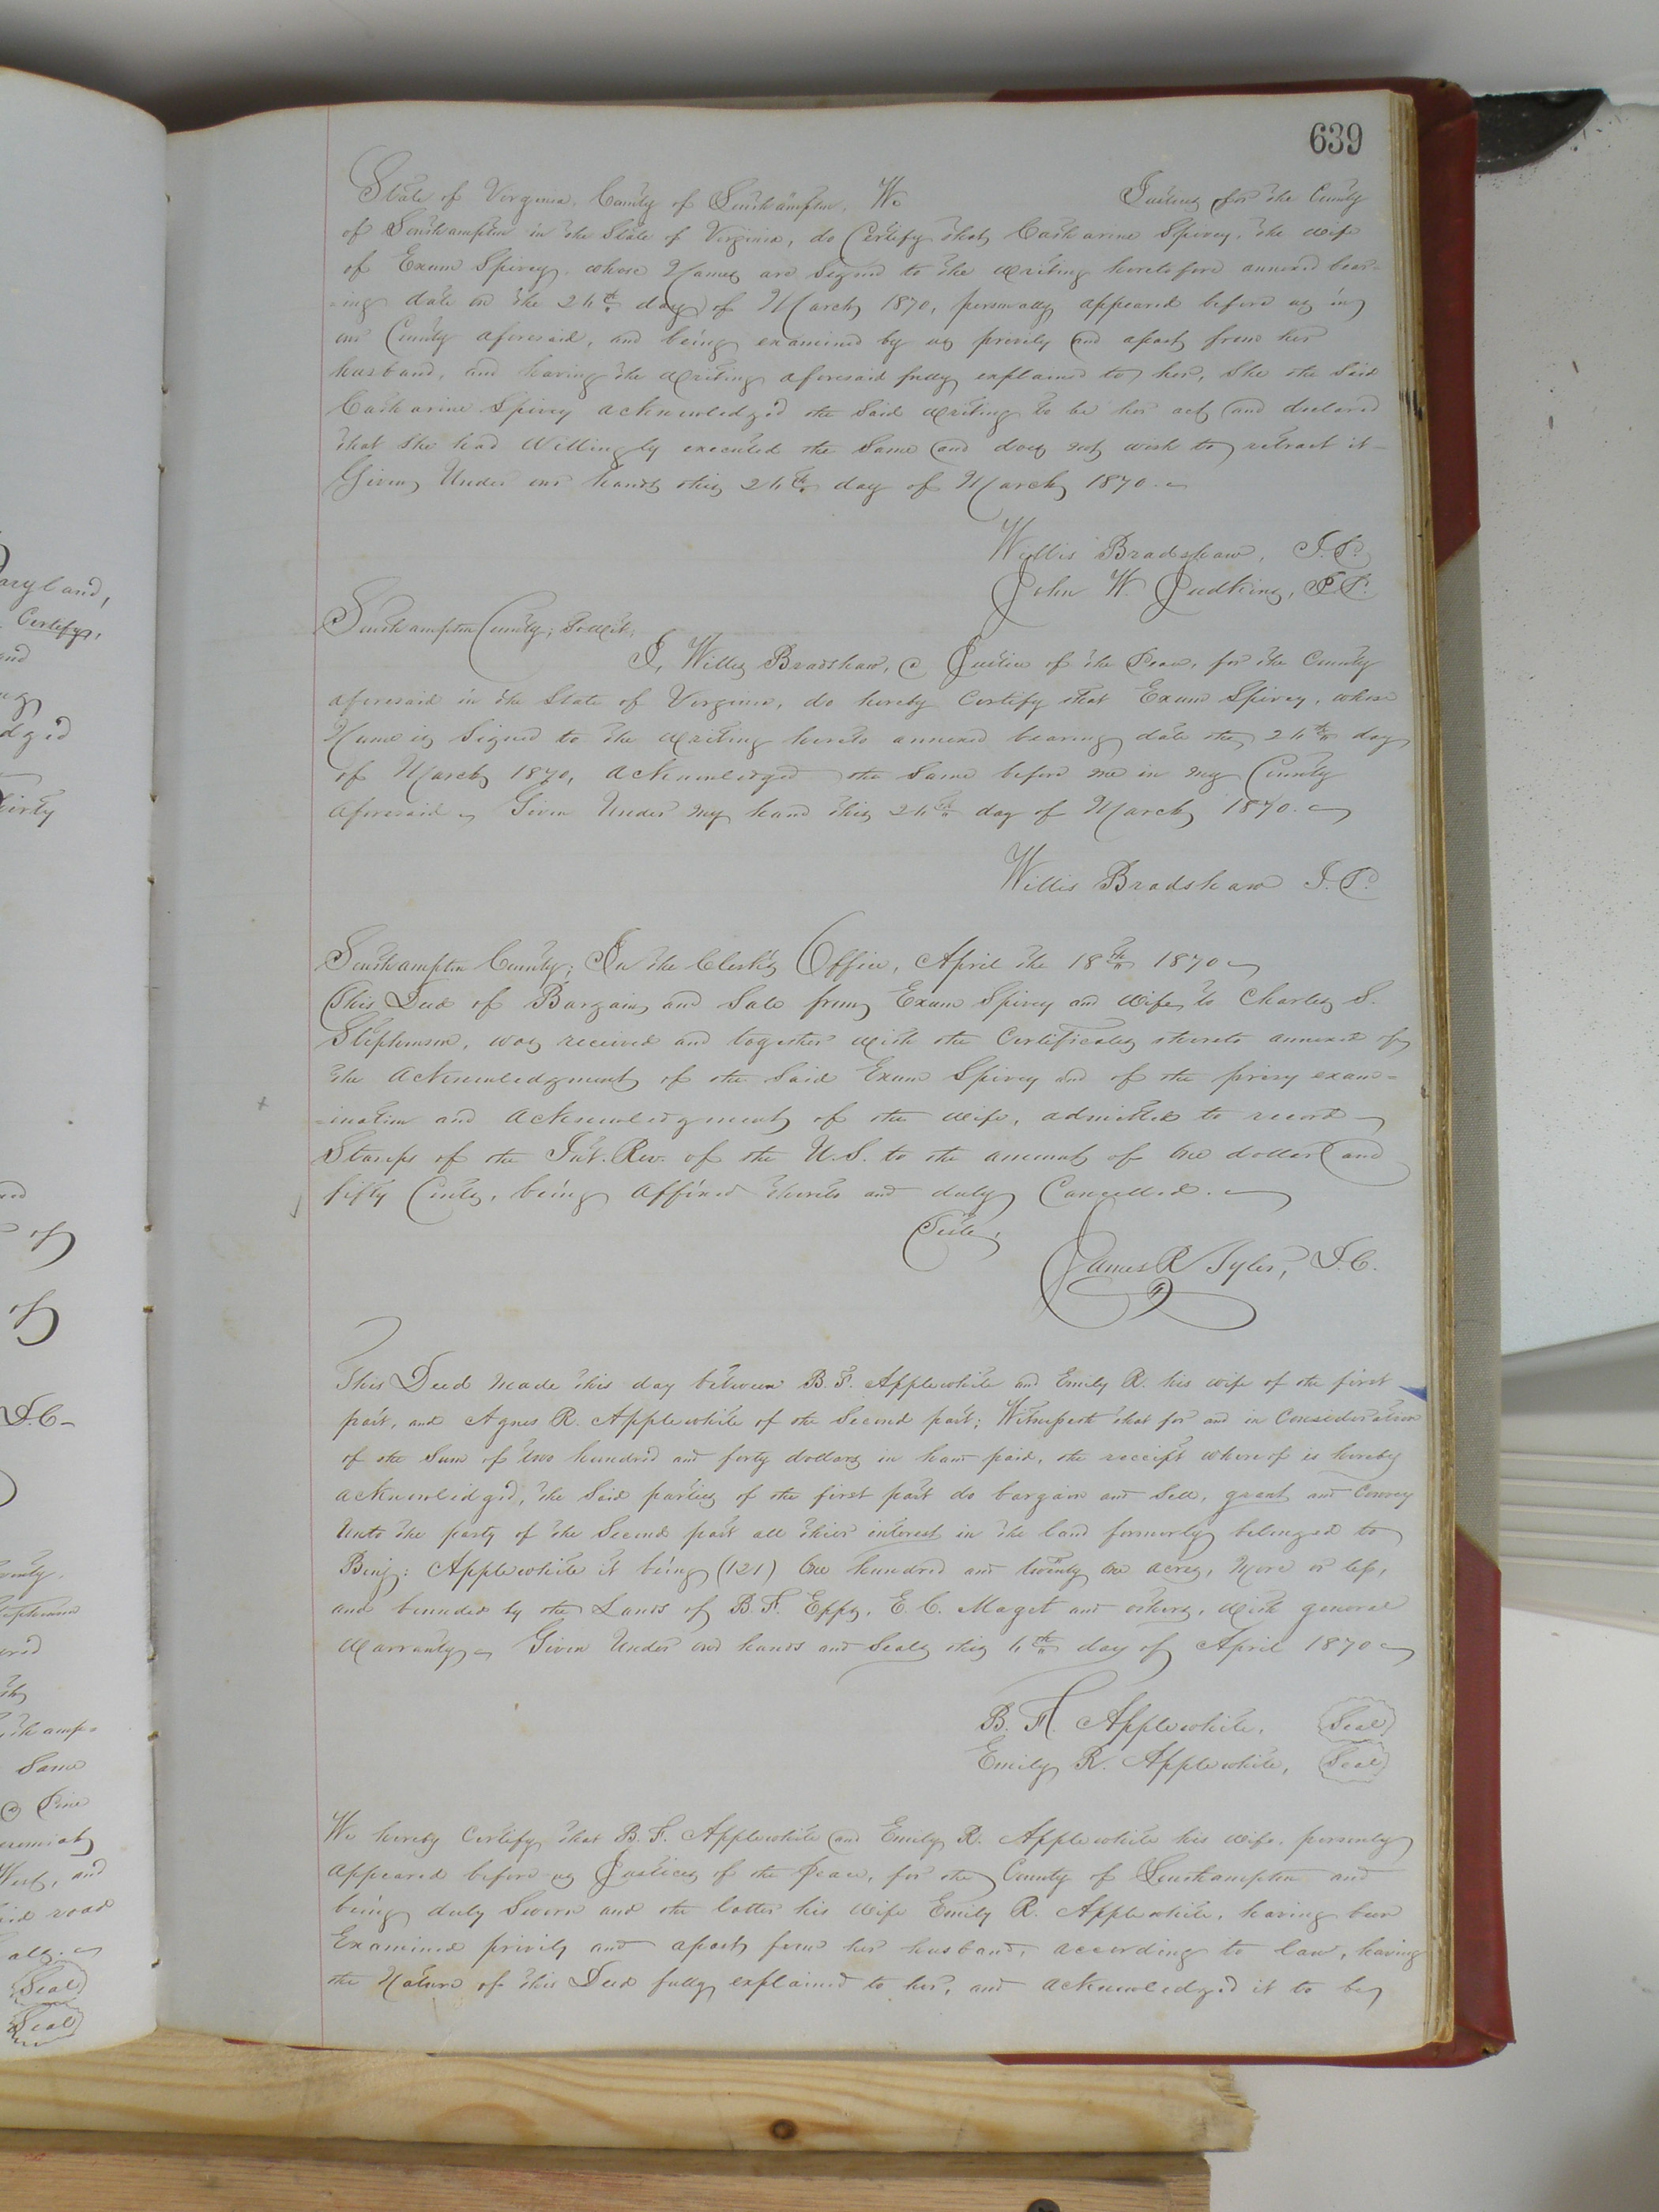 639
State of Virginia, County of Southampton, We Justices for the County
of Southampton in the State of Virginia, do Certify that Catharine Spivey, the wife
of Exum Spivey, whose Names are Signed to the writing heretofore annexed bear=
=ing date on the 24th day of March 1870, personally appeared before us in
our County aforesaid, and being examined by us privily and apart from her
husband, and having the writing aforesaid fully explained to her, She the Said
Catharine Spivey acknowledged the Said writing to be her act and declared
that She had Willingly executed the Same and does not wish to retract it –
Given Under our hands this 24th day of March 1870.
Willis Bradshaw, J.P.
John W. Judkins, J.P.
Southampton County; To wit;
I, Willis Bradshaw, a Justice of the Peace, for the County
aforesaid in the State of Virginia, do hereby Certify that Exum Spivey, whose
Name is Signed to the writing hereto annexed bearing date the 24th day
of March 1870, acknowledged the Same before me in my County
aforesaid Given Under my hand this 24th day of March 1870.
Willis Bradshaw J.P.
Southampton County; In the Clerk's Office, April the 18th 1870
This Deed of Bargain and Sale from Exum Spivey and wife, to Charles S.
Stephenson, was received and together with the Certificates thereto annexed of
the Acknowledgment of the Said Exum Spivey and of the privy exam=
=ination and acknowledgment of the wife, admitted to record
Stamps of the Int. Rev. of the U.S. to the amount of One dollar and
fifty Cents, being Affixed thereto and duly Cancelled.
Teste,
James R Tyler, D.C.
This Deed Made this day between B. F. Applewhite and Emily R. his wife of the first
part, and Agnes R. Applewhite of the Second part; Witnesseth that for and in Consideration
of the Sum of two hundred and forty dollars in hand paid, the receipt whereof is hereby
acknowledged, the Said parties of the first part do bargain and Sell, grant and Convey
Unto the party of the Second part all their interest in the land formerly belonged to
Benj: Applewhite it being (121) One hundred and twenty one acres, More or less,
and bounded by the Lands of B. F. Epps, E. C. Maget and others, with general
Warranty Given Under our hands and Seals this 4th day of April 1870
B. F. Applewhite, Seal
Emily R. Applewhite, Seal
We hereby Certify that B. F. Applewhite and Emily R. Applewhite his wife, personly
appeared before us Justices of the Peace, for the County of Southampton and
being duly Sworn and the latter his wife Emily R. Applewhite, having been
Examined privily and apart from her husband, according to law, having
the Nature of this Deed fully explained to her, and acknowledged it to be